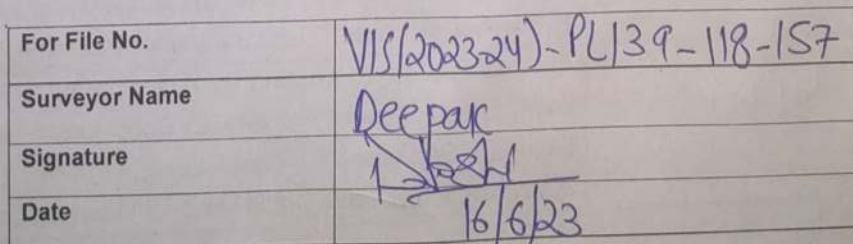 For File No. VIS(2023-24)-PL139-118-157
Surveyor Name Deepak
Signature
Date 16/6/23